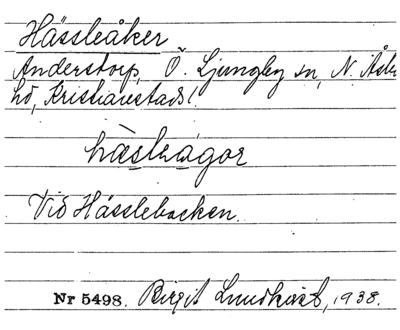 Hässleåker
Anderstorp, Ö. Ljungby sn, N. Åsbo
hd, Kristianstads l.
hàsleágor
Vid Hässlebacken.
Nr 5498. Birgit Lundkvist, 1938.